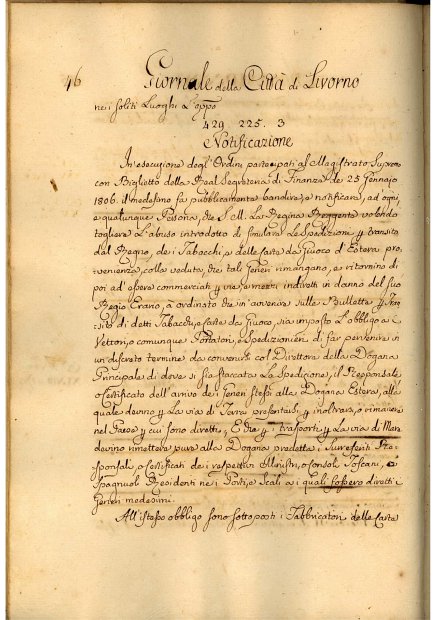 46 Giornale della Città di Livorno
nei soliti Luoghi
429 225. 3
Notificazione
In esecuzione degl'Ordini partecipati al Magistrato Supremo
con Biglietto della Real Segreteria di Finanza de 25 Gennajo
1806. il medesimo fa pubblicamente bandire, e notificare, ad ogni,
e qualunque Persona, che S. M. La Regina Reggente volendo
togliere L'abuso introdotto di simulare Le Spedizioni p transito
dal Regno, dei Tabacchi, e delle Carte da Giuoco d'Estera pro,,
venienza, colla veduta, che tali Generi rimangano, e ritornino di
poi ad essere commerciati p vie, e mezzi indiretti in danno del suo
Regio Erario, a ordinato che in avvenire sulle Bullette p Tran,,
sito di detti Tabacchi, e Carte da Giuoco, sia imposto L'obbligo a i
Vettori, o comunque Portatori, e Spedizionieri di far pervenire in
un discreto termine da convenirsi col Direttore della Dogana
Principale di dove si sia staccata La Spedizione, il Responsale
o Certificato dell'arrivo dei Generi stessi alla Dogana Estera, alla
quale devono p La via di Terra presentarsi, p inoltrarsi, o rimanere
nel Paese p cui sono diretti, E che p i trasporti p La via di Mare
devino rimettere pure alla Dogana predetta i Surreferiti Re,,
sponsali, o Certificati dei respettivi Ministri, o Consoli Toscani, o
Spagnuoli Residenti nei Porti, e Scali a i quali fossero diretti i
Generi medesimi.
All'istesso obbligo sono sottoposti i Fabbricatori delle Carte